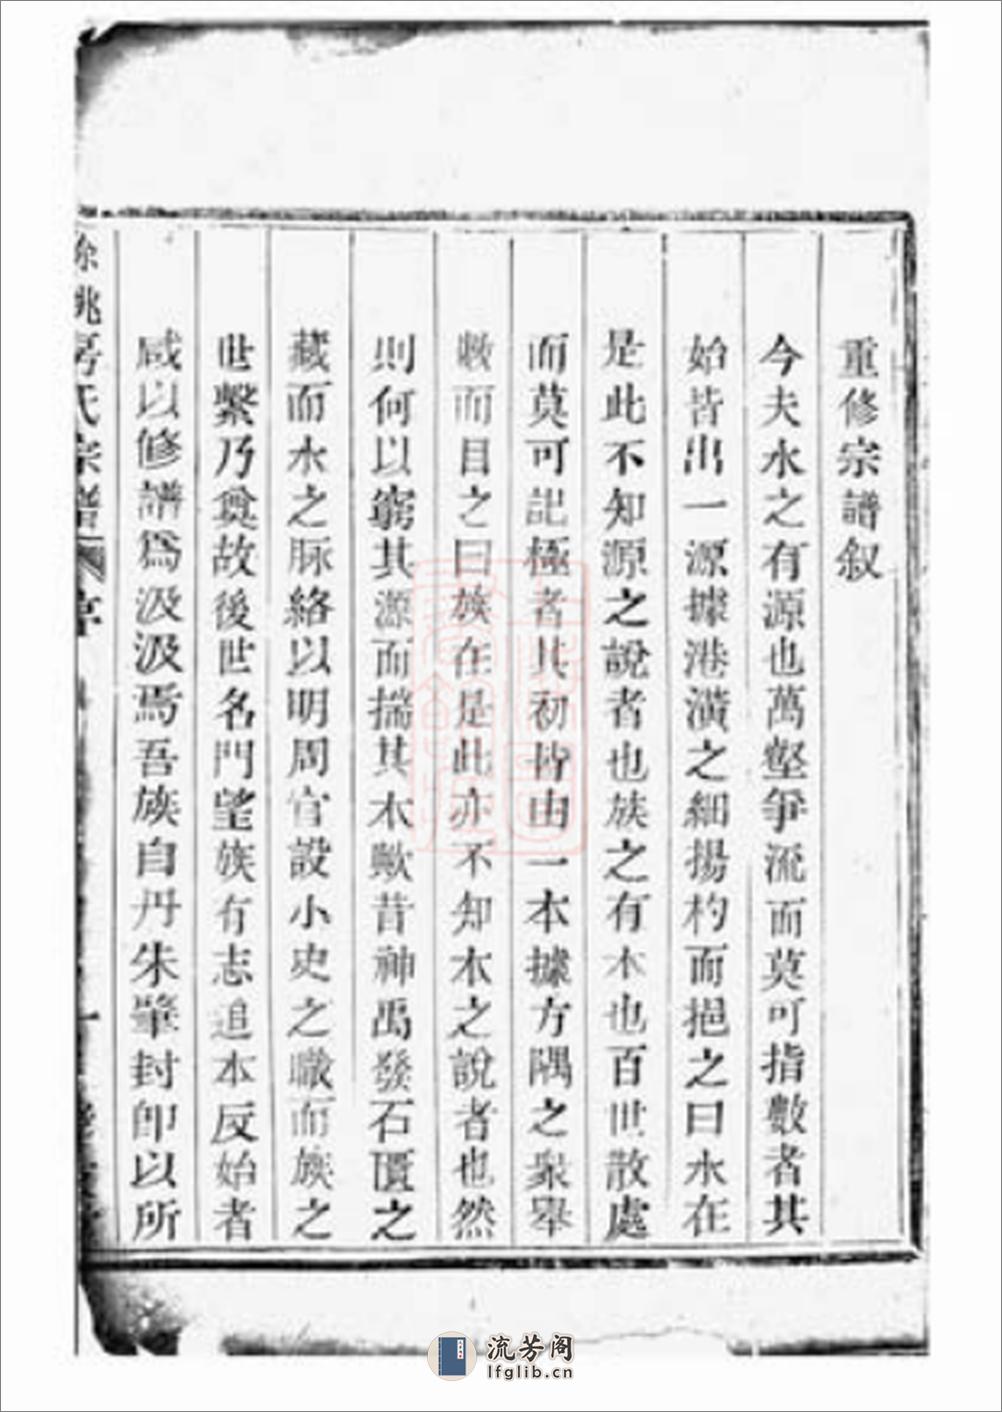 重修宗譜叙
今夫水之有源也萬壑爭流而莫可指數者其
始皆出一源據港潢之細揚杓而挹之曰水在
是此不知源之說者也族之有本也百世散處
而莫可記極者其初皆由一本據方隅之衆舉
數而目之曰族在是此亦不知本之說者也然
則何以窮其源而揣其本歟昔神禹發石匱之
藏而水之脉絡以明周官設小史之職而族之
世繫乃奠故後世名門望族有志追本反始者
咸以修譜為汲汲焉吾族自丹朱肇封卽以所
餘姚房氏宗譜 序 一
流芳阁
lfglib.cn